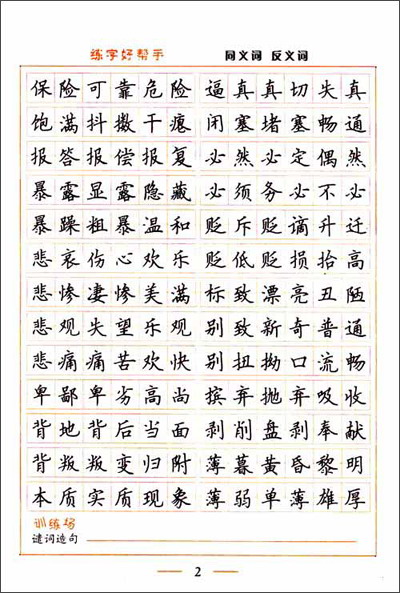 练字好帮手 同义词 反义词
保险可靠危险 逼真真切失真
饱满抖擞干瘪 闭塞堵塞畅通
报答报偿报复 必然必定偶然
暴露显露隐藏 必须务必不必
暴躁粗暴温和 贬斥贬谪升迁
悲哀伤心欢乐 贬低贬损抬高
悲惨凄惨美满 标致漂亮丑陋
悲观失望乐观 别致新奇普通
悲痛痛苦欢快 别扭拗口流畅
卑鄙卑劣高尚 摈弃抛弃吸收
背地背后当面 剥削盘剥奉献
背叛叛变归附 薄暮黄昏黎明
本质实质现象 薄弱单薄雄厚
训练场
谴词造句
2